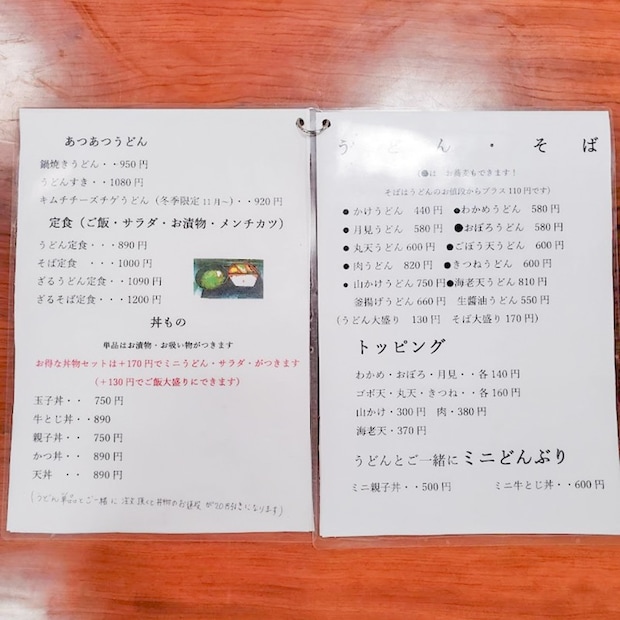 あつあつうどん
鍋焼きうどん・・950円
うどんすき・・1080円
キムチチーズチゲうどん（冬季限定11月〜）・・920円
定食（ご飯・サラダ・お漬物・メンチカツ）
うどん定食・・・890円
そば定食 ・・・1000円
ざるうどん定食・・・1090円
ざるそば定食・・・1200円
丼もの
単品はお漬物・お吸い物がつきます
お得な丼物セットは＋170円でミニうどん・サラダ・がつきます
（＋130円でご飯大盛りにできます）
玉子丼・・ 750円
牛とじ丼・・890
親子丼・・ 750円
かつ丼・・ 890円
天丼 ・・ 890円
(うどん単品とご一緒に注文頂くと丼物のお値段が20円引きになります)
うどん・そば
（●は お蕎麦もできます！
そばはうどんのお値段からプラス110円です）
●かけうどん 440円 ●わかめうどん 580円
●月見うどん 580円 ●おぼろうどん 580円
●丸天うどん600円 ●ごぼう天うどん 600円
●肉うどん 820円 ●きつねうどん 600円
●山かけうどん750円●海老天うどん810円
釜揚げうどん660円 生醤油うどん550円
（うどん大盛り 130円 そば大盛り170円）
トッピング
わかめ・おぼろ・月見・・各140円
ゴボ天・丸天・きつね・・各160円
山かけ・300円 肉・380円
海老天・370円
うどんとご一緒にミニどんぶり
ミニ親子丼・・500円 ミニ牛とじ丼・・600円